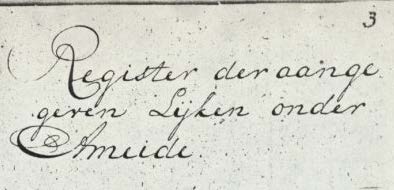 3
Register der aange
geven Lijken onder
Ameide.